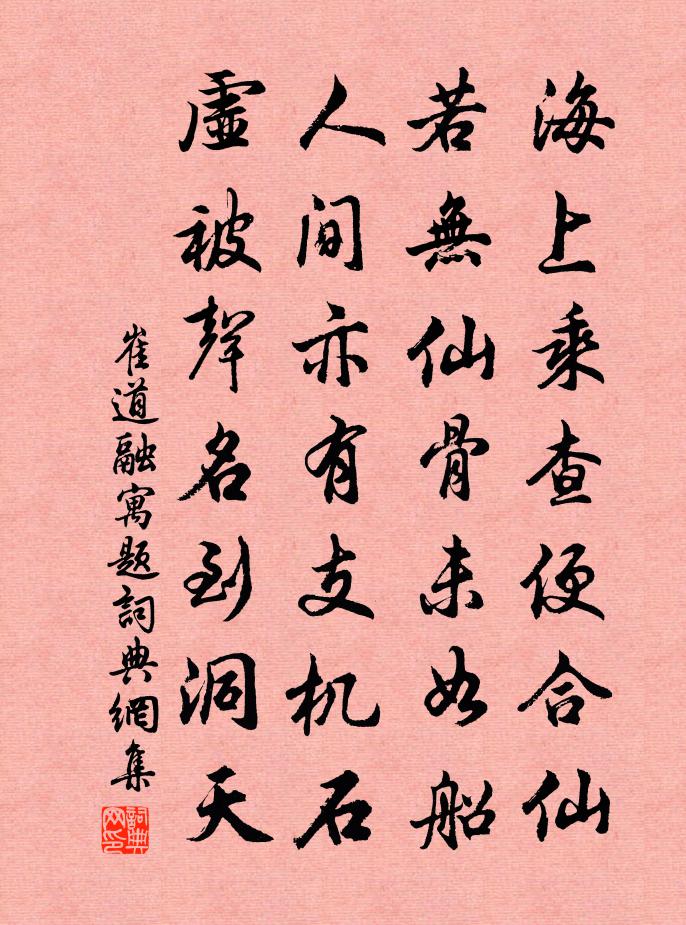 海上乘查便合仙
若無仙骨未如船
人间亦有支机石
虛被聲名到洞天
崔道融寓题詞典網集
詞典网印